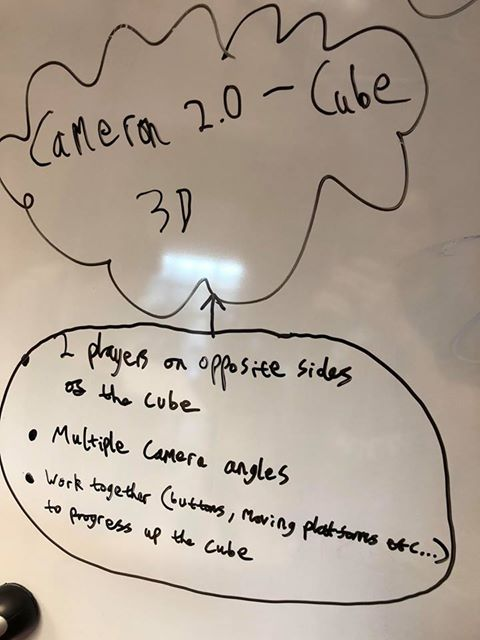 Cameron 2.0 - Cube
3D
• 2 players on opposite sides
of the cube
• Multiple Camera angles
• Work together (buttons, moving platforms etc...)
to progress up the cube